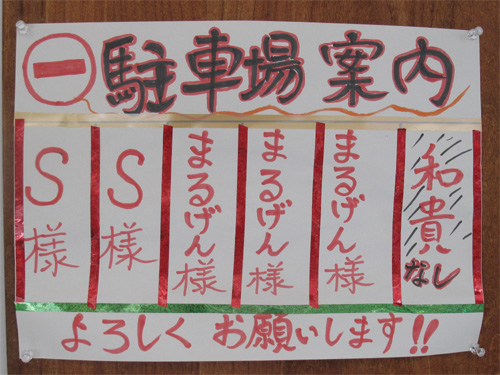 ㊀駐車場案内
和貴なし
まるげん様
まるげん様
まるげん様
S様
S様
よろしくお願いします!!